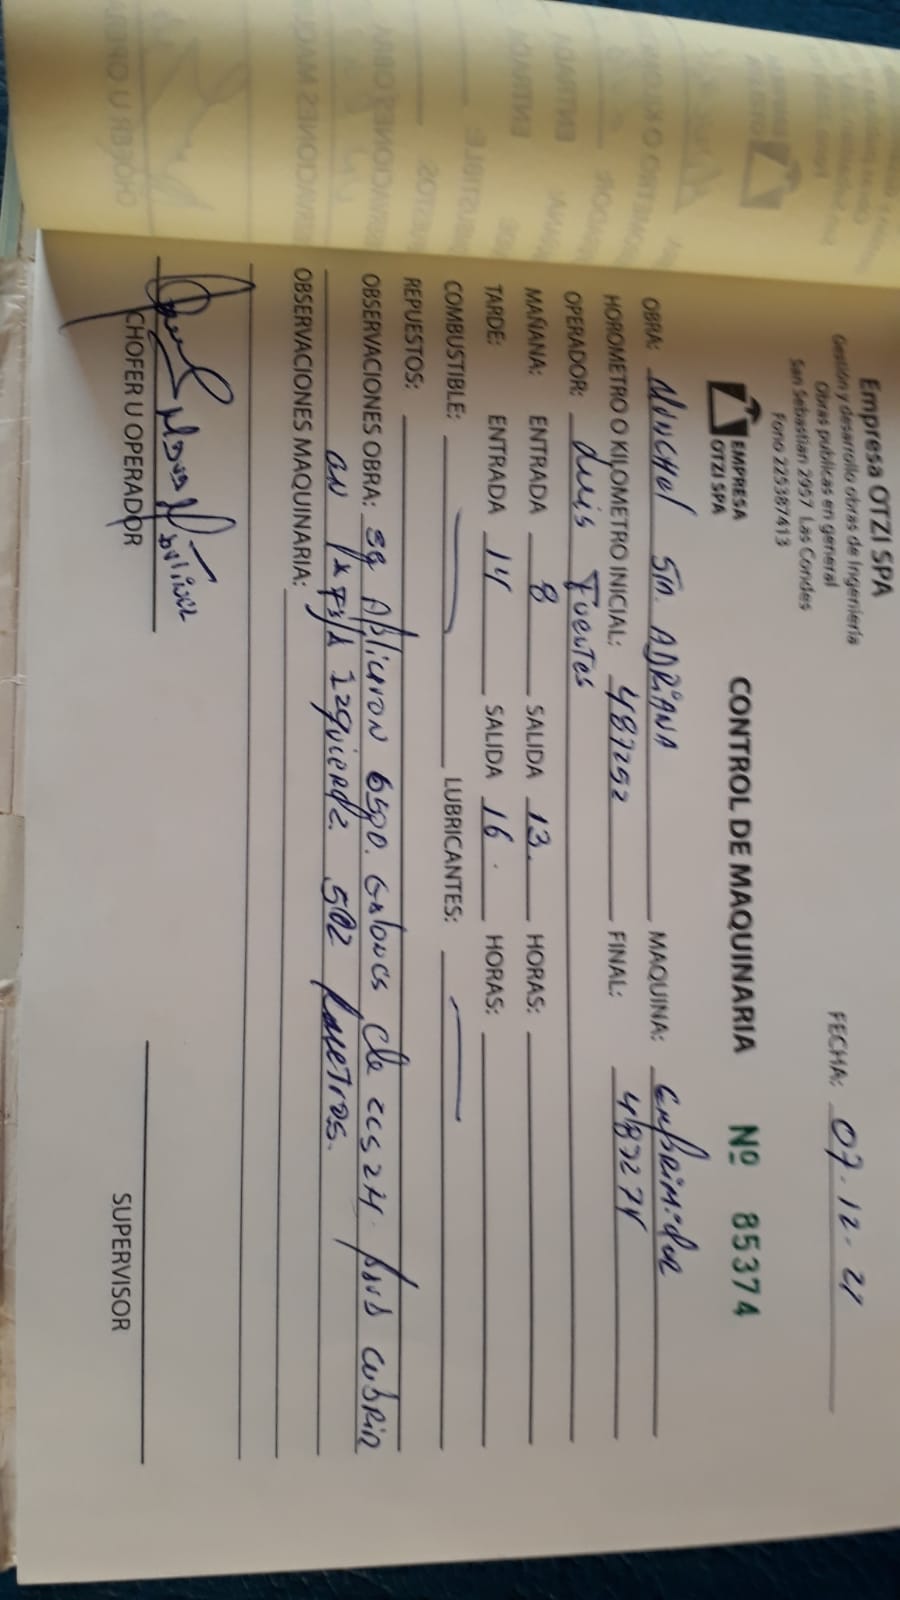 Empresa OTZI SPA
Gestión y desarrollo obras de Ingeniería
Obras publicas en general
San Sebastian 2957 Las Condes
Fono 225387413
FECHA: 07-12-21
EMPRESA
OTZI SPA
CONTROL DE MAQUINARIA Nº 85374
OBRA: ADRIANA MAQUINA:
HOROMETRO O KILOMETRO INICIAL: 487252 FINAL: 487274
OPERADOR: Luis Fuentes
MAÑANA: ENTRADA 8 SALIDA 13. HORAS:
TARDE: ENTRADA 14 SALIDA 16 HORAS:
COMBUSTIBLE: LUBRICANTES:
REPUESTOS:
OBSERVACIONES OBRA: se Aplicaron 6500. Galones de para cubrir
en la Izquierda 502 metros.
OBSERVACIONES MAQUINARIA:
CHOFER U OPERADOR
SUPERVISOR